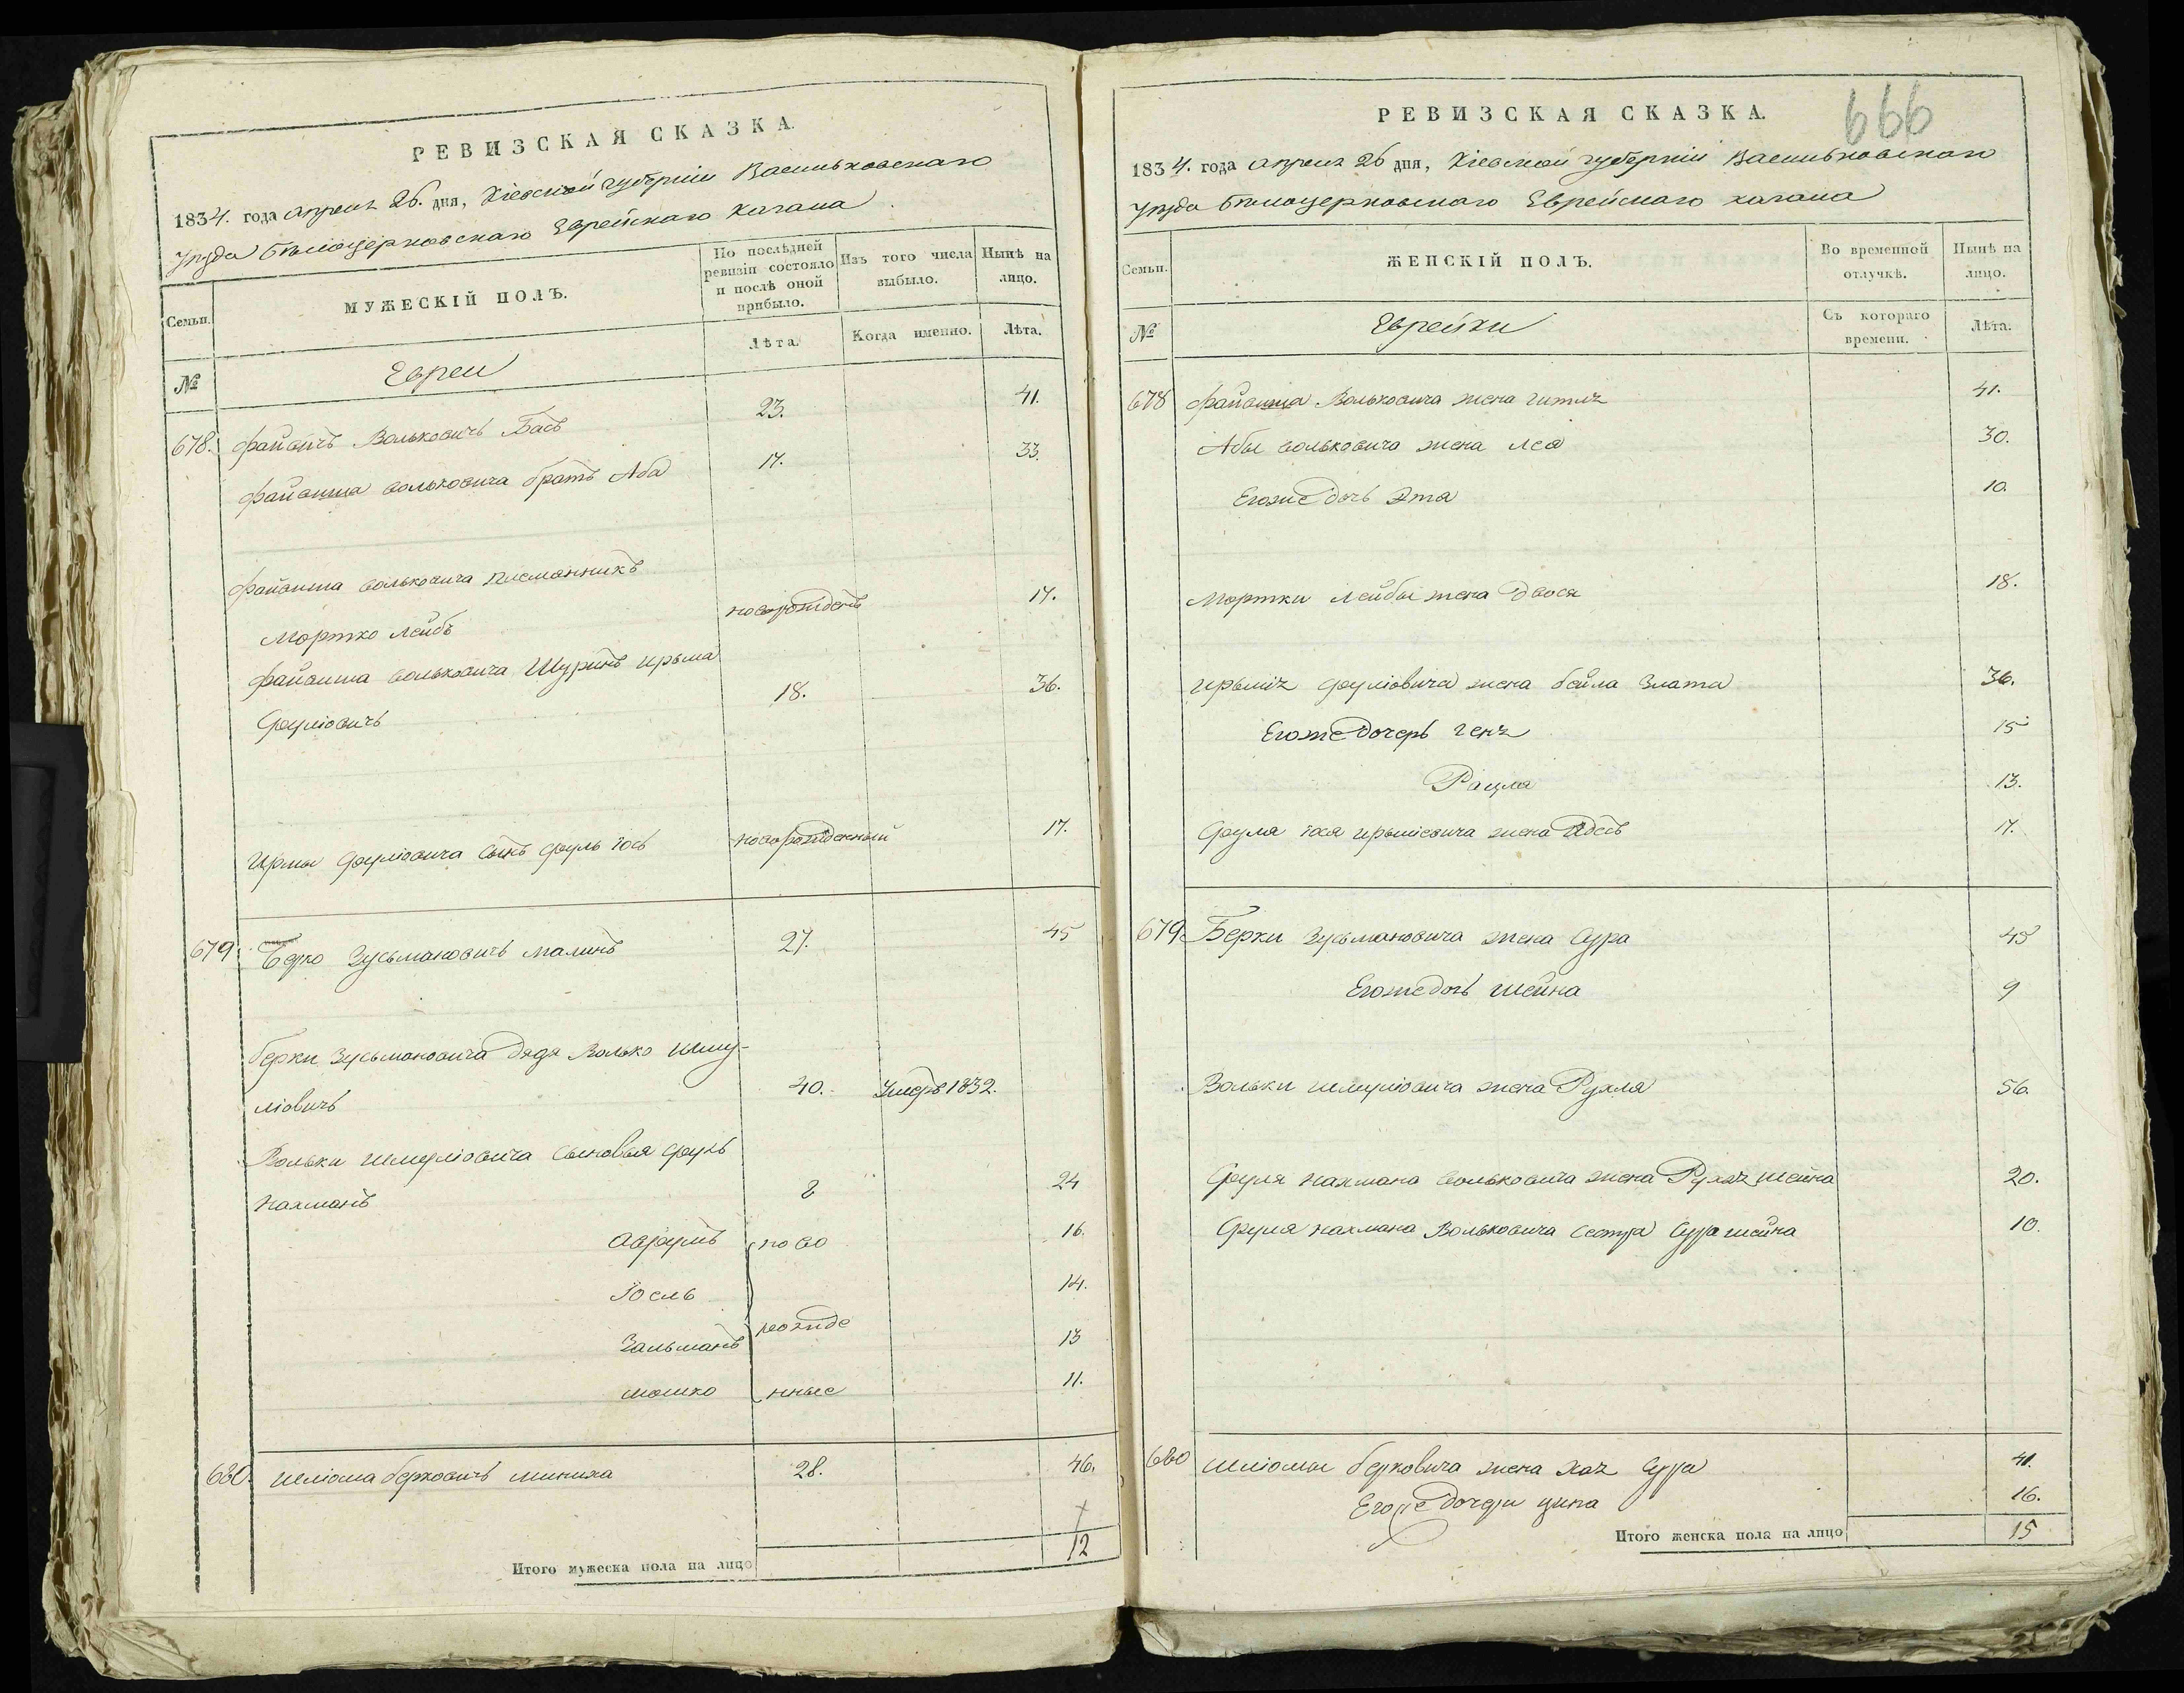 РЕВИЗСКАЯ СКАЗКА.
1834. года апреля 26. дня, Кіевской губерніи Васильковскаго
уезда Белоцерковскаго Еврейскаго кагала
Семьи.
МУЖЕСКІЙ ПОЛЪ.
По послѣдней ревизіи состояло и послѣ оной прибыло.
Изъ того числа выбыло.
Нынѣ на лицо.
№
Евреи
Лѣта.
Когда именно.
Лѣта.
678. Файвишъ Вольковичъ Басъ 23. 41.
Файвиша Вольковича братъ Аба 17. 33.
Файвиша Вольковича
Мортко Лейбъ новорожденъ 17.
Файвиша Вольковича Шуринъ Ирыма
Сруліовичъ 18. 36.
Ирмы Сруліовича сынъ Сруль Іось новорожденный 17.
679. Берко Зусьмановичъ Малинъ 27. 45
Берки Зусьмановича дядя Волько Шму-
ліовичъ 40. Умеръ 1832.
Вольки Шмуліовича сыновья Сруль
Нахманъ 8 24
Аврумъ ново 16.
Іосль 14.
Зальманъ рожде 13
Мошко нные 11.
680. Шліома Берковичъ Миниха 28. 46.
Итого мужеска пола на лицо 12
666
РЕВИЗСКАЯ СКАЗКА.
1834. года апреля 26 дня, Кіевской губерніи Васильковскаго
уезда Белоцерковскаго Еврейскаго кагала
Семьи.
ЖЕНСКІЙ ПОЛЪ.
Во временной отлучкѣ.
Нынѣ на лицо.
№
Еврейки
Съ котораго времени.
Лѣта.
678 Файвиша Вольковича жена Гитля 41.
Абы Вольковича жена Лея 30.
Егоже дочь Эта 10.
Мортки Лейбы жена Двося 18.
Ирыміи Сруліовича жена Бейла Злата 36.
Егоже дочерь Геня 15
Рацля 13.
Сруля Іося Ирыміовича жена Идесь 17.
679. Берки Зусьмановича жена Сура 45
Егоже дочь Шейна 9
Вольки Шмуліовича жена Рухля 56.
Сруля Нахмана Вольковича жена Рухля Шейна 20.
Сруля Нахмана Вольковича сестра Сура Шейна 10.
680 Шліомы Берковича жена Хая Сура 41.
Егоже дочери Ципа 16.
Итого женска пола на лицо 15